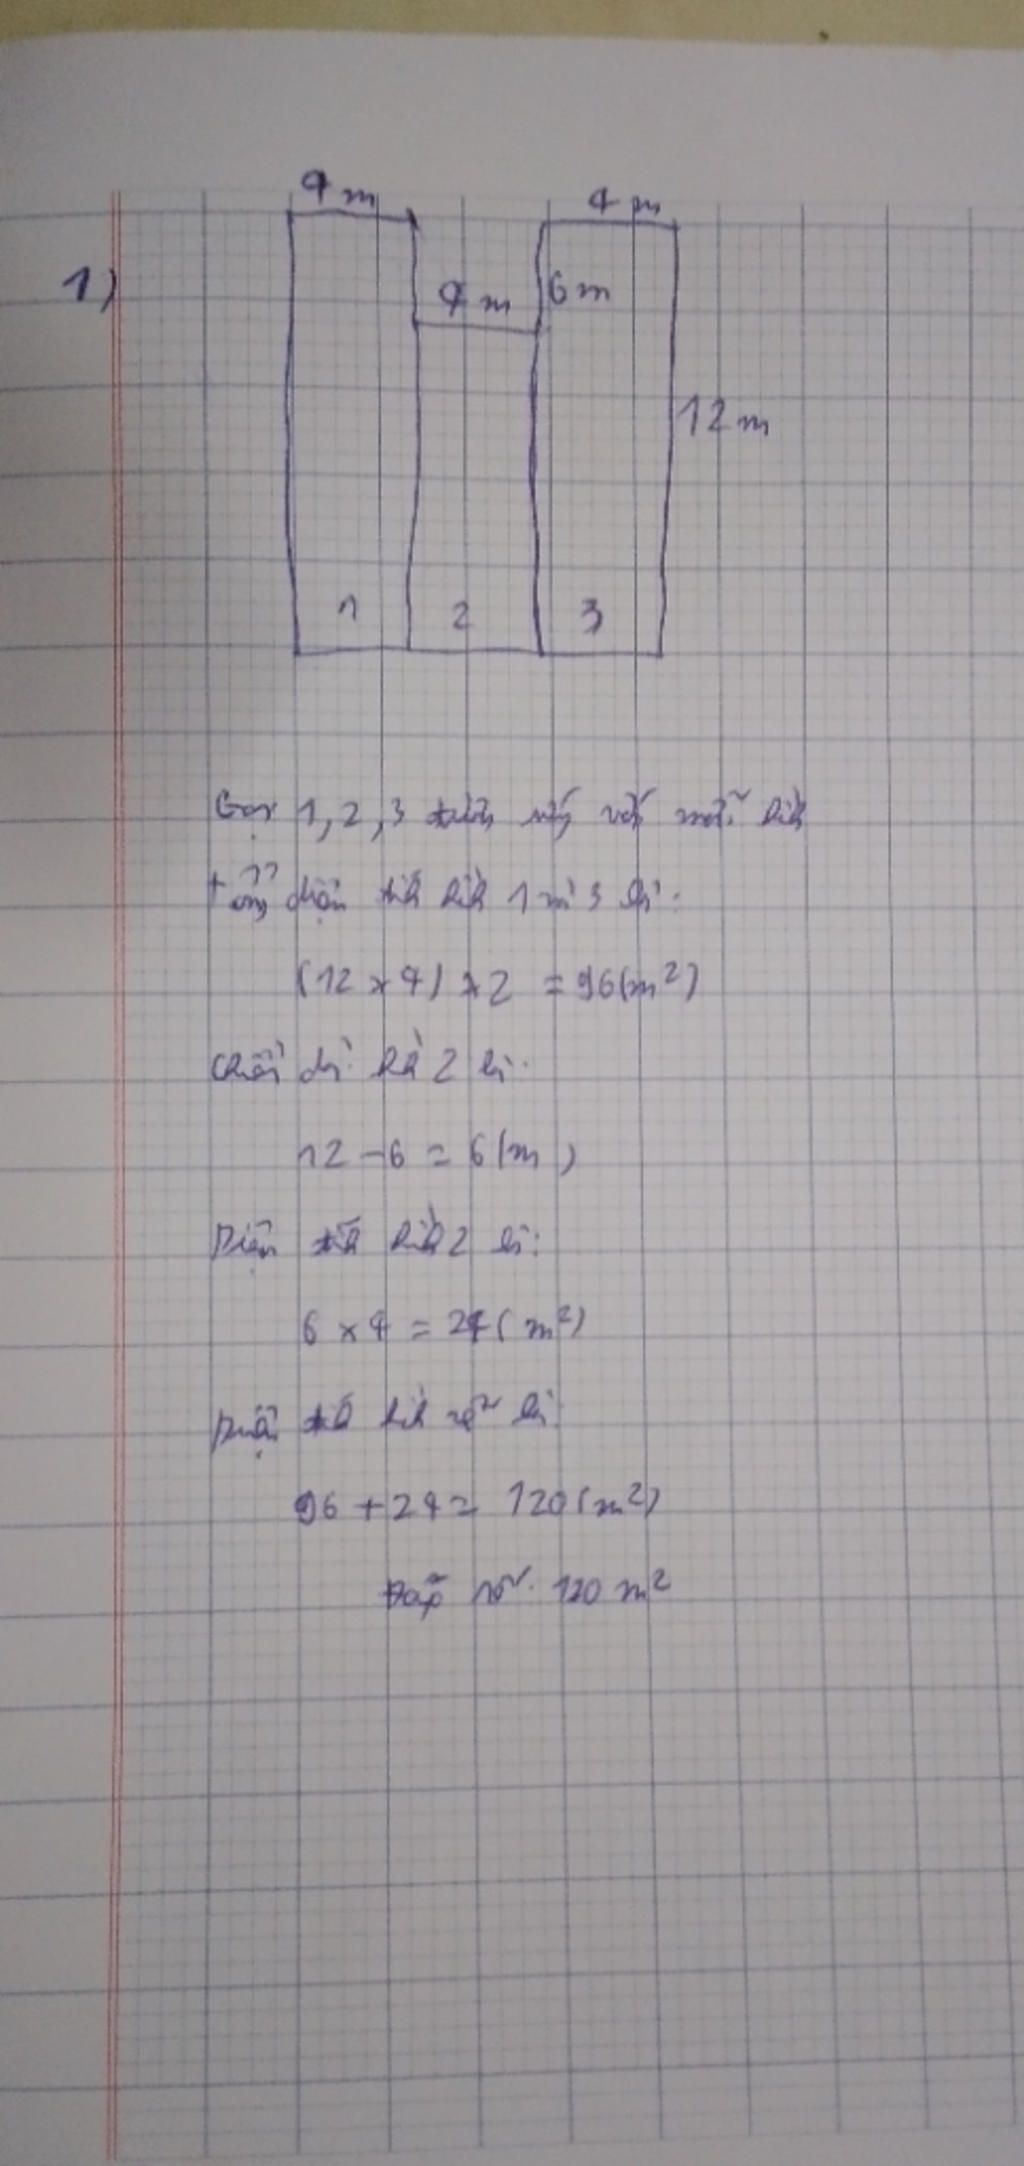 4 m 4 m
1)
4 m 6 m
12 m
1 2 3
Gọi 1, 2, 3 với mỗi hình
tổng diện tích hình 1 và 3 là:
(12 x 4) x 2 = 96(m²)
Chiều dài hình 2 là:
12 - 6 = 6(m)
Diện tích hình 2 là:
6 x 4 = 24(m²)
Diện tích hình vẽ là:
96 + 24 = 120(m²)
Đáp số: 120 m²